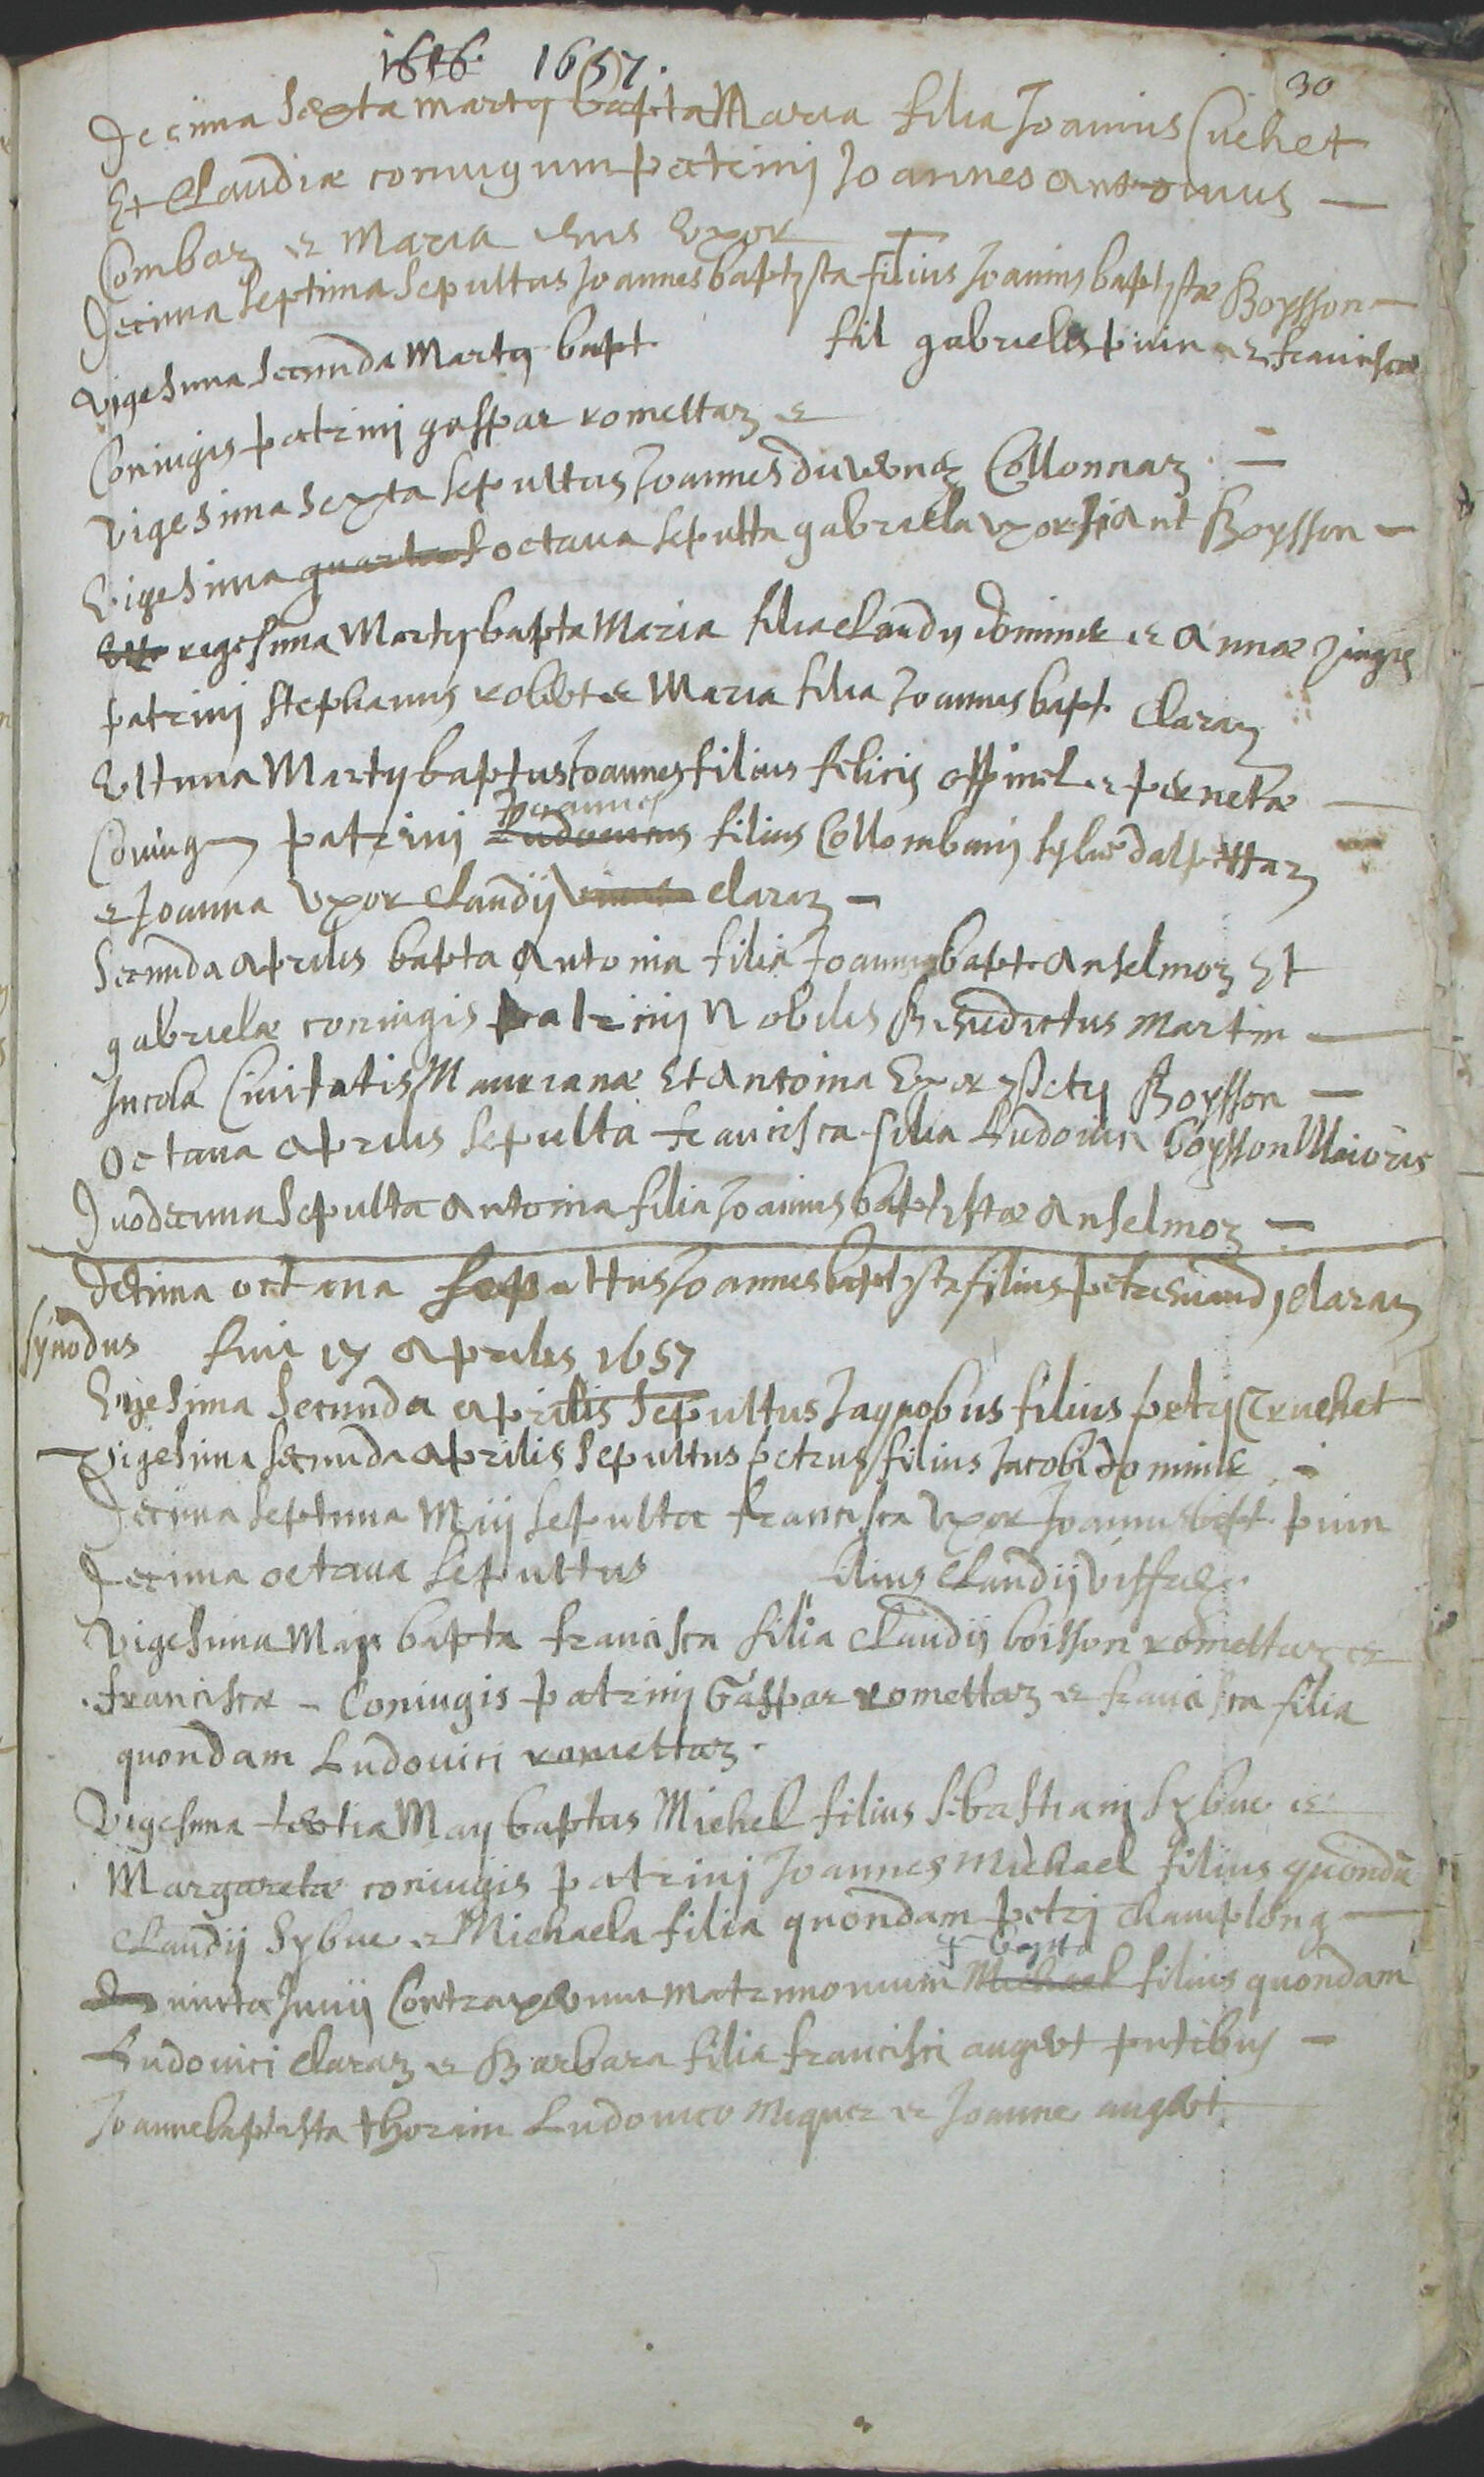 1656. 1657.
30
Decima sexta martij bapta Maria filia Joannis Cruchet
Et Claudiæ coniugum patrinij Joannes Antonius —
Combaz et Maria eius Vxor
Decima septima sepultus Joannes baptysta filius Joannis baptystæ Boysson —
Vigesima secunda Martij bapt fil gabrielis puin et franciscæ
Coniugis patrinij gaspar romettaz et
Vigesima sexta sepultus Joannes Collonnaz —
Vigesima quarta octaua sepulta gabriela vxor Ant Boysson —
vigesima Martij bapta Maria filia claudij dominik et Annæ
patrinij stephanus robbt et Maria filia Joannis bapt claraz
Vltima Martij baptus Joannes filius felicis offinel et pernetæ —
Coniug patrinij Ludouicus Joannes filius Collombanij sybue dalpettaz
et Joanna vxor claudij claraz —
Secunda aprilis bapta Antonia filia Joannis bapt Anselmoz Et
gabrielæ coniugis patrinij Nobilis Benedictus Martin —
Incola Ciuitatis Maurianæ Et Antonia Vxor Petrj Boysson —
Octaua aprilis sepulta francisca filia Ludouici boysson Maioris
Duodecima sepulta Antonia filia Joannis baptystæ Anselmoz —
Decima octaua sepultus Joannes baptysta filius petri claraz
synodus fuit 17 Aprilis 1657
Vigesima secunda aprilis sepultus Jaquobus filius petrj Cruchet
Vigesima secunda aprilis sepultus petrus filius Jacobi dominik —
Decima septima Maij sepulta francisca vxor Joannis bapt puin
Decima octaua sepultus filius claudij
Vigesima Maij bapta francisca filia claudij boisson romettaz et
franciscæ — Coniugis patrinij Gaspar romettaz et francisca filia
quondam Ludouici romettaz.
Vigesima tertia Maij baptus Michel filius sebastianij sybue et
Margaretæ coniugis patrinij Joannes Michael filius quondā
claudij sybue et Michaela filia quondam petrj champlong —
quinta Junij Contraxerunt matrimonium Michael filius quondam
Ludouici claraz et Barbara filia francisci augert pntibus —
Joanne baptista thorim Ludouico miquez et Joanne augert